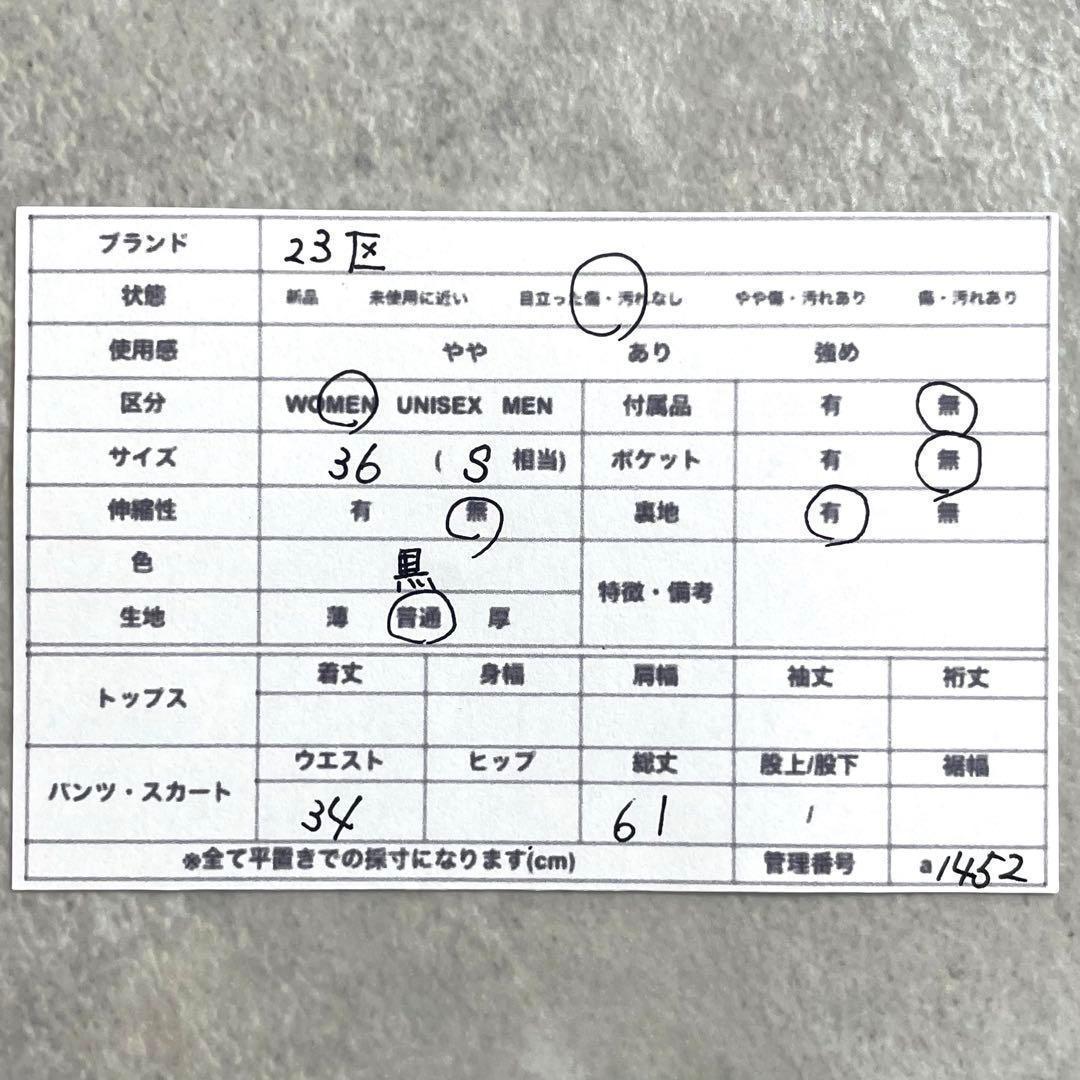 ブランド 23区
状態 新品 未使用に近い 目立った傷・汚れなし やや傷・汚れあり 傷・汚れあり
使用感 やや あり 強め
区分 WOMEN UNISEX MEN 付属品 有 無
サイズ 36 ( S 相当) ポケット 有 無
伸縮性 有 無 裏地 有 無
色 黒
特徴・備考
生地 薄 普通 厚
トップス 着丈 身幅 肩幅 袖丈 裄丈
パンツ・スカート ウエスト ヒップ 総丈 股上/股下 裾幅
34 61 /
※全て平置きでの採寸になります(cm) 管理番号 a1452